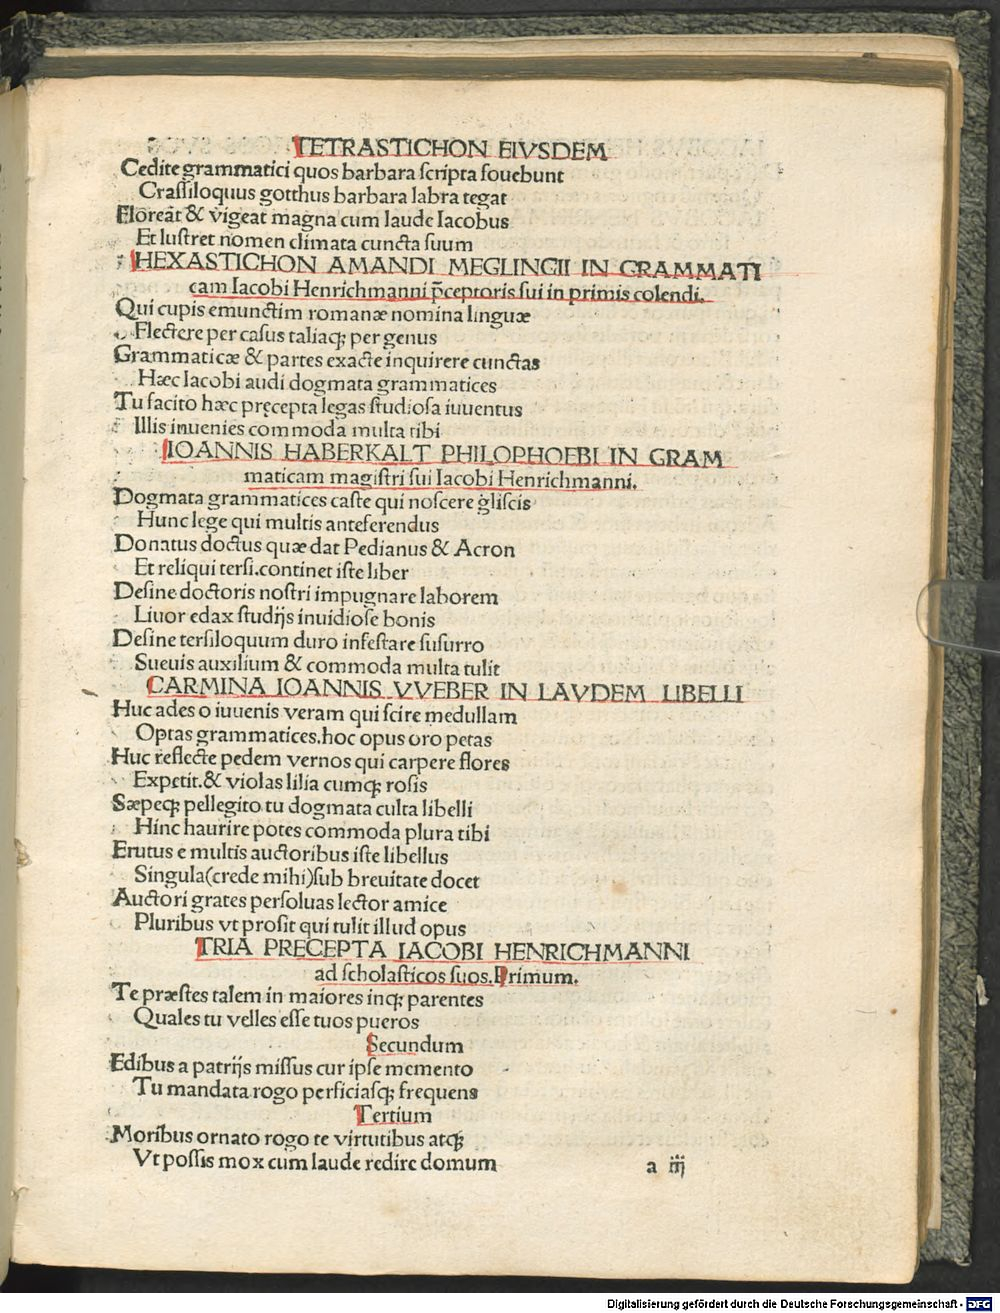 TETRASTICHON EIVSDEM
Cedite grammatici quos barbara ſcripta fouebunt
Craſſiloquus gotthus barbara labra tegat
Floreāt & vigeat magna cum laude Iacobus
Et luſtret nomen climata cuncta ſuum
HEXASTICHON AMANDI MEGLINGII IN GRAMMATI
cam Iacobi Henrichmanni p̄ceptoris ſui in primis colendi.
Qui cupis emunctim romanæ nomina linguæ
Flectere per caſus taliaq; per genus
Grammaticæ & partes exacte inquirere cunctas
Hæc Iacobi audi dogmata grammatices
Tu facito hæc pręcepta legas ſtudioſa iuuentus
Illis inuenies commoda multa tibi
IOANNIS HABERKALT PHILOPHOEBI IN GRAM
maticam magiſtri ſui Iacobi Henrichmanni.
Dogmata grammatices caſte qui noſcere gliſcis
Hunc lege qui multis anteferendus
Donatus doctus quæ dat Pedianus & Acron
Et reliqui terſi.continet iſte liber
Deſine doctoris noſtri impugnare laborem
Liuor edax ſtudijs inuidioſe bonis
Deſine terſiloquum duro infeſtare ſuſurro
Sueuis auxilium & commoda multa tulit
CARMINA IOANNIS VVEBER IN LAVDEM LIBELLI
Huc ades o iuuenis veram qui ſcire medullam
Optas grammatices.hoc opus oro petas
Huc reflecte pedem vernos qui carpere flores
Expetit.& violas lilia cumq; roſis
Sæpeq; pellegito tu dogmata culta libelli
Hinc haurire potes commoda plura tibi
Erutus e multis auctoribus iſte libellus
Singula(crede mihi)ſub breuitate docet
Auctori grates perſoluas lector amice
Pluribus vt proſit qui tulit illud opus
TRIA PRECEPTA IACOBI HENRICHMANNI
ad ſcholaſticos ſuos.Primum.
Te præſtes talem in maiores inq; parentes
Quales tu velles eſſe tuos pueros
Secundum
Edibus a patrijs miſſus cur ipſe memento
Tu mandata rogo perficiaſq; frequens
Tertium
Moribus ornato rogo te virtutibus atq;
Vt poſſis mox cum laude redire domum
a iij
Digitalisierung gefördert durch die Deutsche Forschungsgemeinschaft - DFG